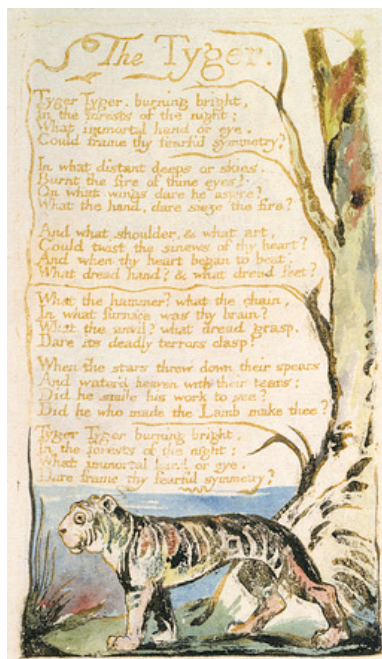 The Tyger.
Tyger Tyger. burning bright,
In the forests of the night;
What immortal hand or eye.
Could frame thy fearful symmetry?
In what distant deeps or skies.
Burnt the fire of thine eyes?
On what wings dare he aspire?
What the hand, dare sieze the fire?
And what shoulder, & what art,
Could twist the sinews of thy heart?
And when thy heart began to beat,
What dread hand? & what dread feet?
What the hammer? what the chain,
In what furnace was thy brain?
What the anvil? what dread grasp.
Dare its deadly terrors clasp?
When the stars threw down their spears
And water'd heaven with their tears:
Did he smile his work to see?
Did he who made the Lamb make thee?
Tyger Tyger burning bright,
In the forests of the night:
What immortal hand or eye.
Dare frame thy fearful symmetry?